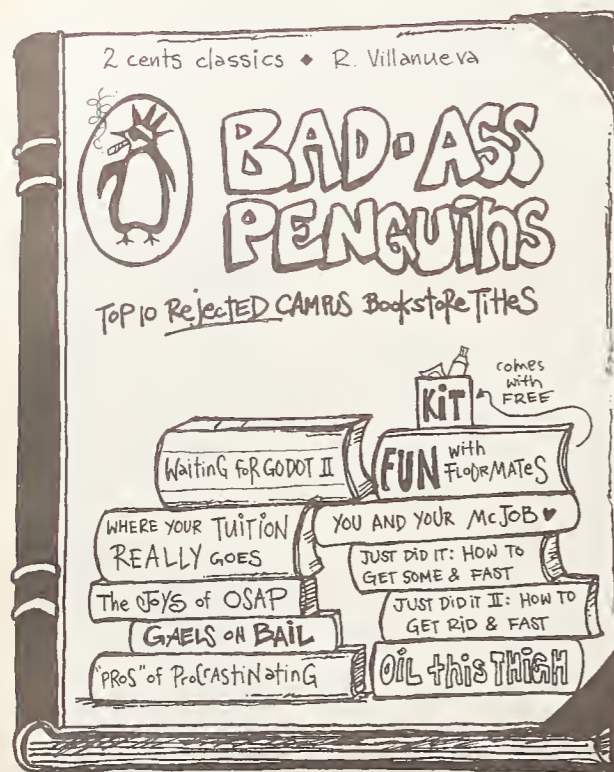 2 cents classics ◆ R. Villanueva
BAD•ASS
PENGUiNS
TOP 10 RejecTED CAMPUS BookstoRe TitleS
KiT
comes
with
FREE
WaitinG foR GODOT II
FUN with
FLOORMATeS
WHERE YOUR TUITION
REALLY GOES
YOU AND YOUR McJOB ♥
JUST DID IT: HOW TO
GET SOME & FAST
The JOYS of OSAP
JUST DID iT II: HOW TO
GET RiD & FAST
GAELS ON BAIL
"PROS" of ProCrAStiNatinG
OiL this THiGH